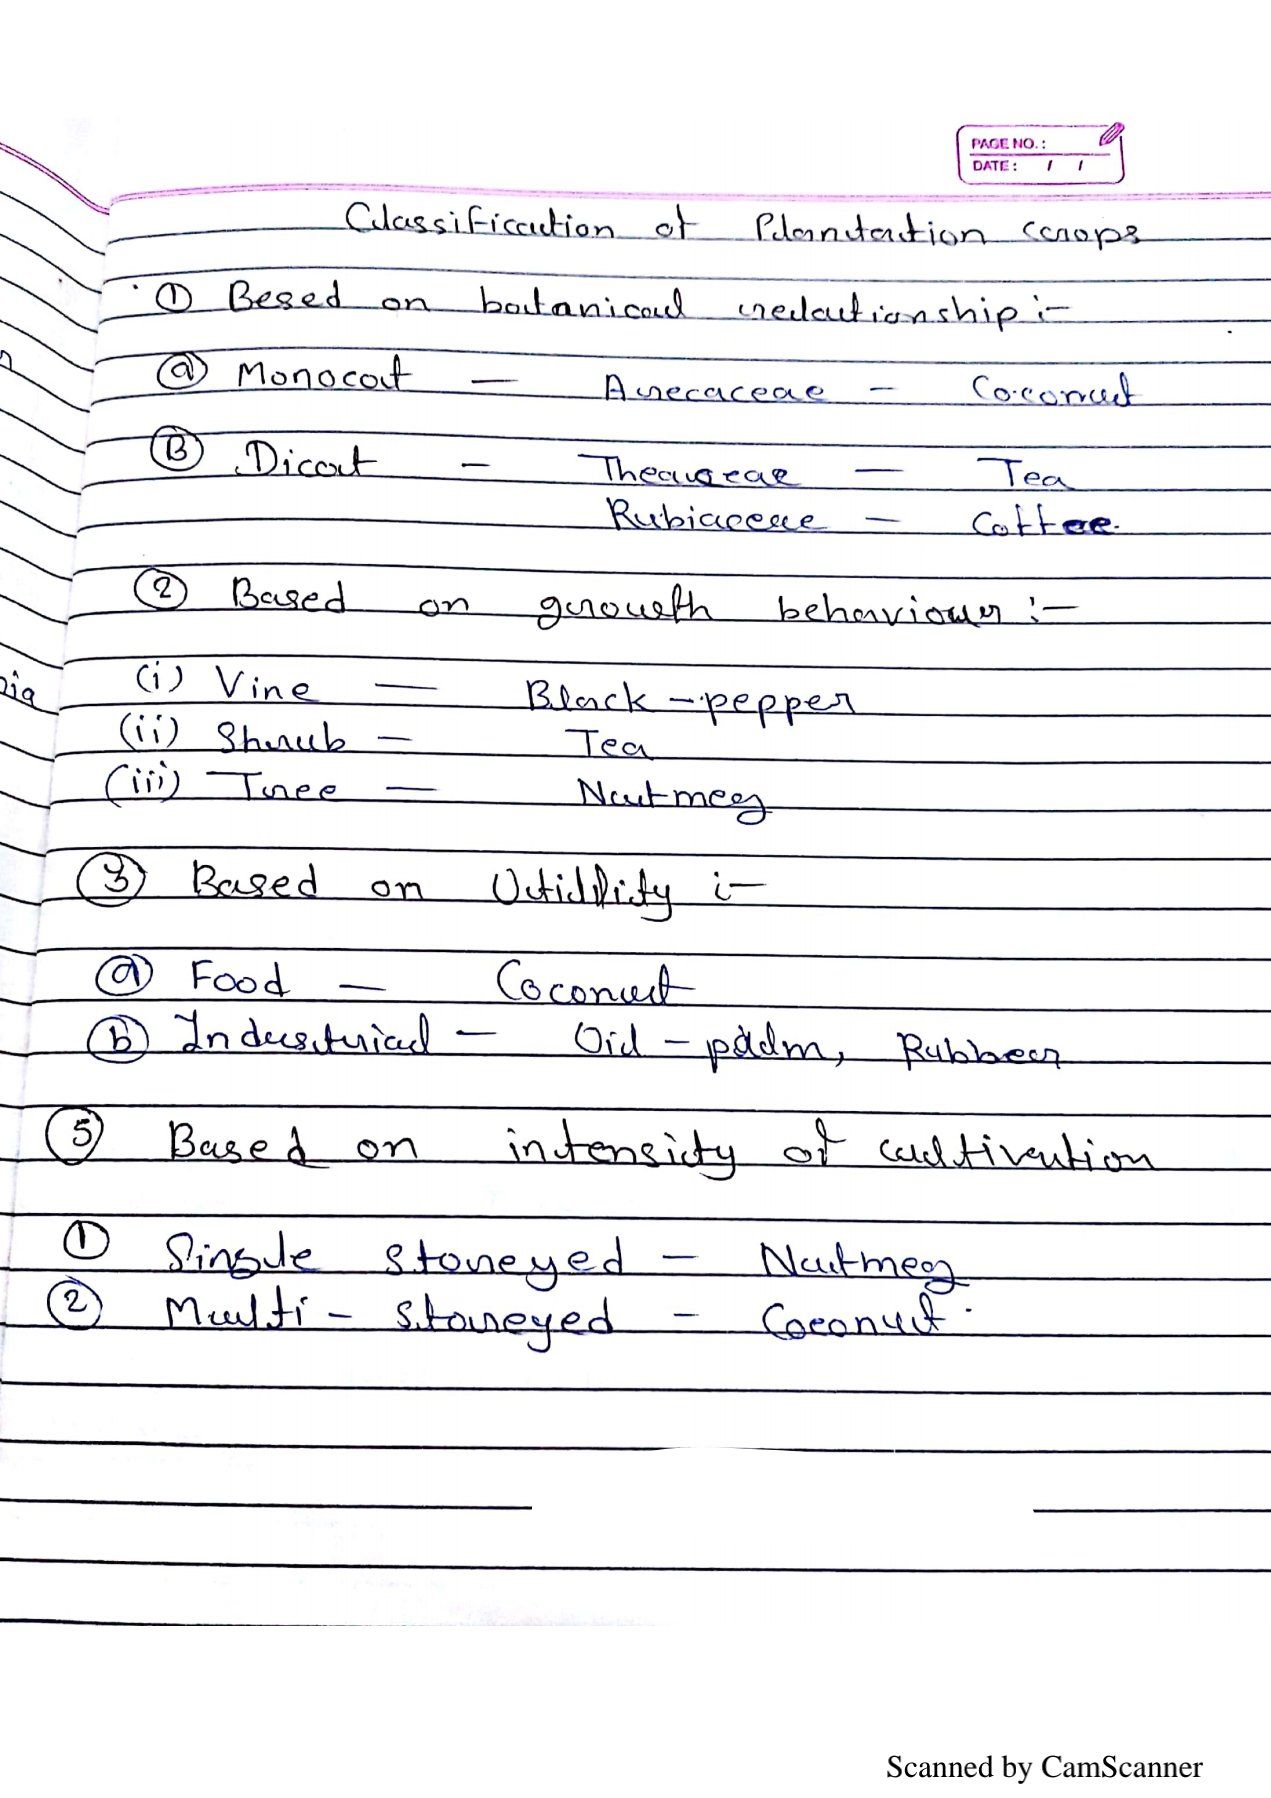 PAGE NO.:
DATE: / /
Classification of Plantation crops
① Besed on botanical relationship :-
ⓐ Monocot — Arecaceae — Coconut
Ⓑ Dicot — Theaceae — Tea
Rubiaceae — Coffee.
② Based on growth behaviour :-
(i) Vine — Black-pepper
(ii) Shrub — Tea
(iii) Tree — Nutmeg
③ Based on Utility :-
ⓐ Food — Coconut
ⓑ Industrial — Oil-palm, Rubber
⑤ Based on intensity of cultivation
① Single storeyed — Nutmeg
② Multi-storeyed — Coconut.
Scanned by CamScanner